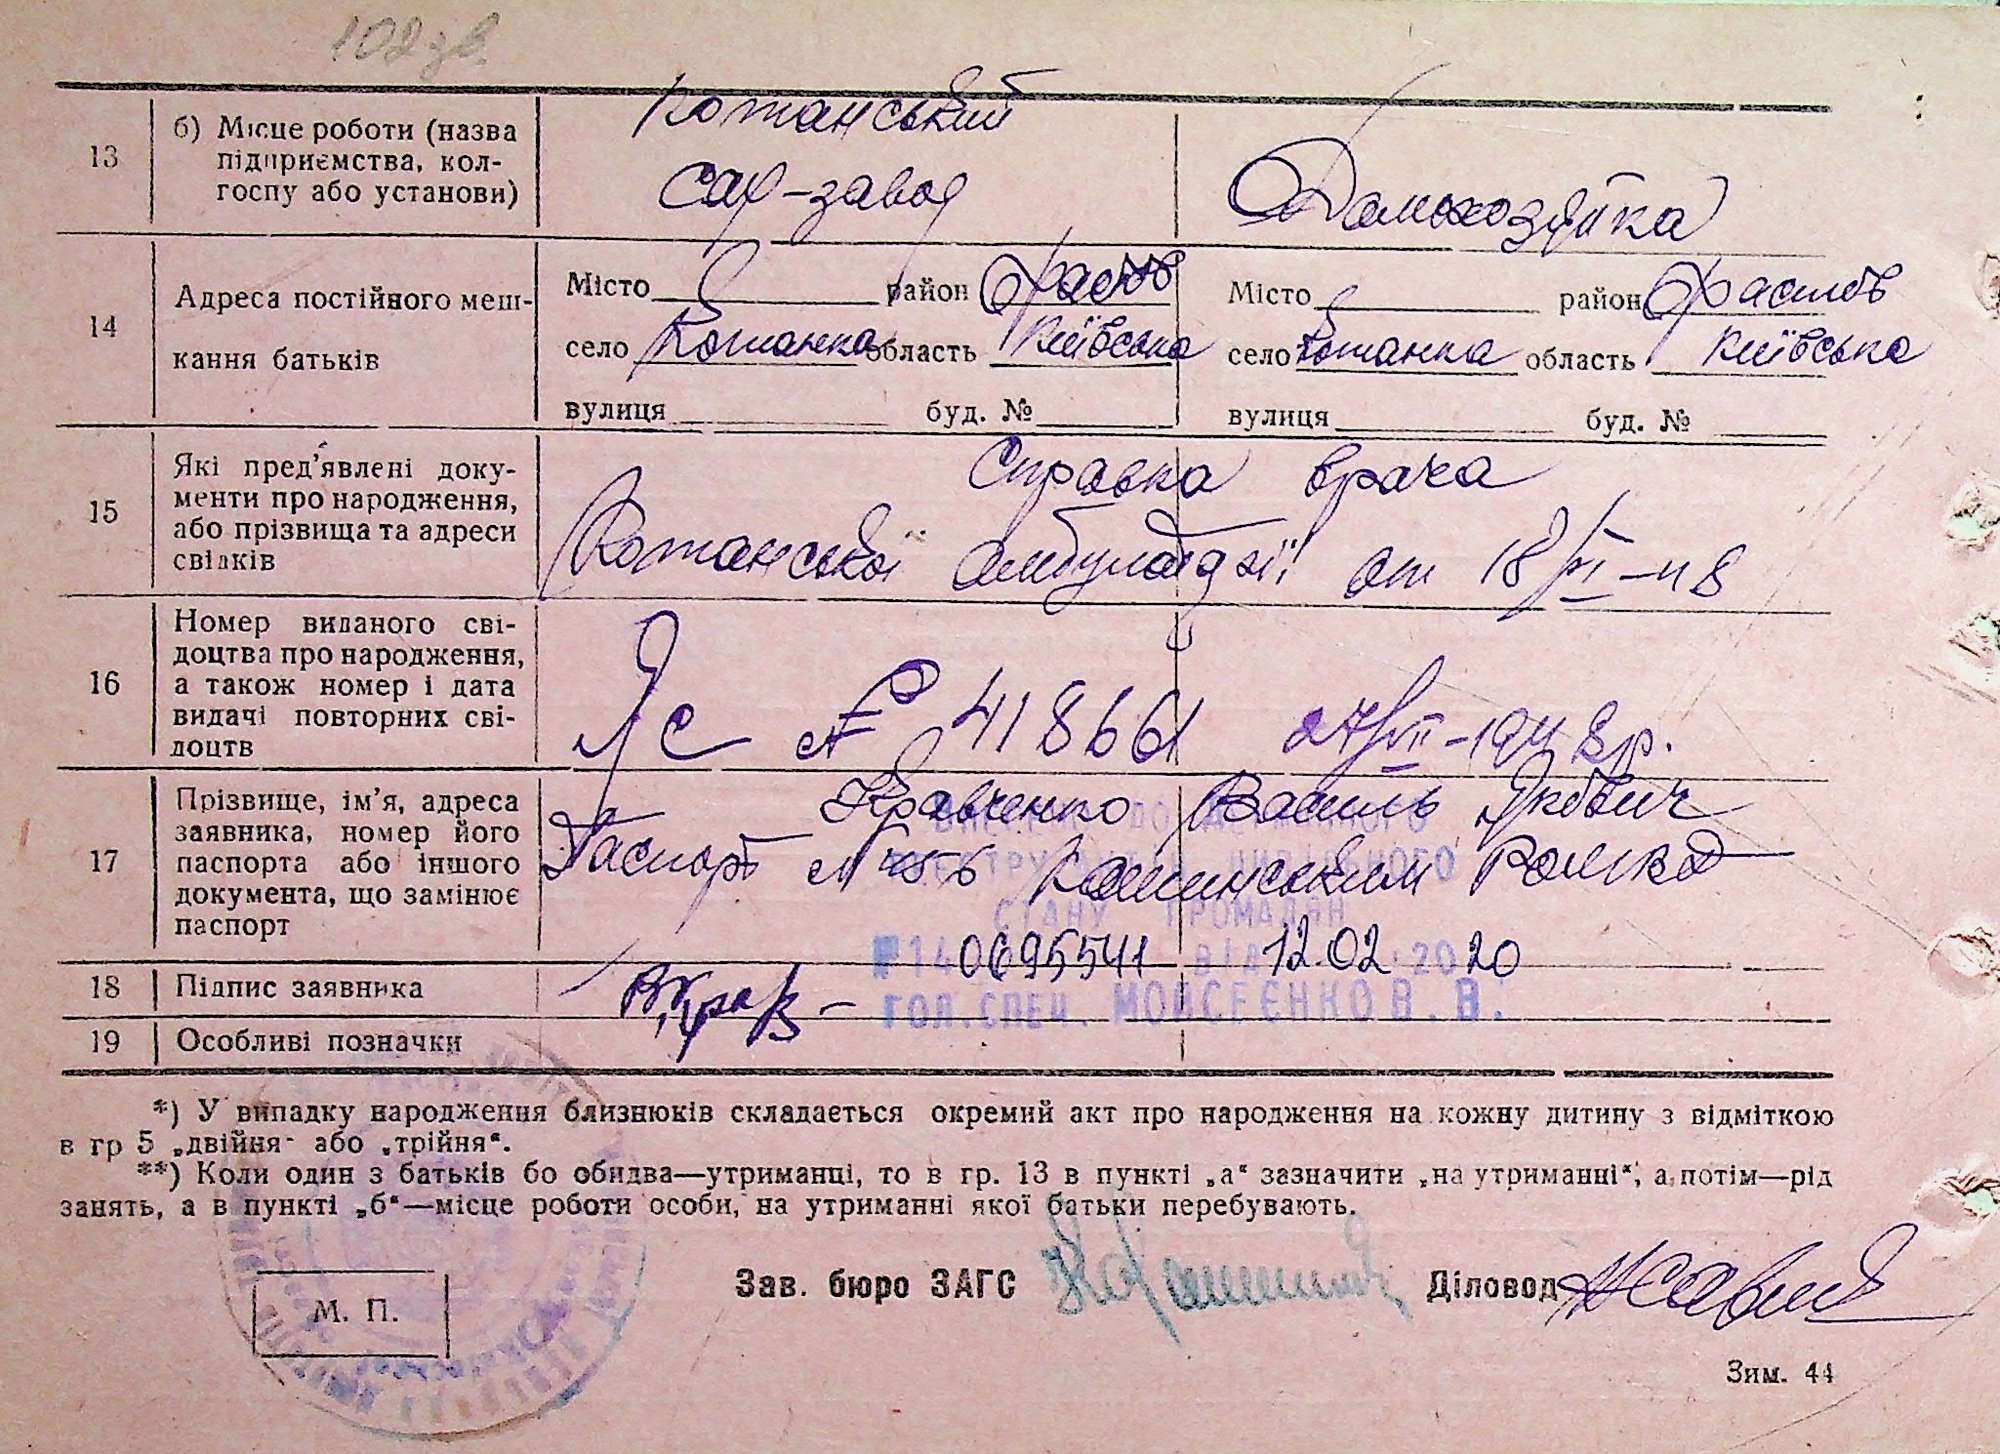 102 зв.
13
б) Місце роботи (назва
підприємства, кол-
госпу або установи)
Кожанський
Сах-завод
Домохозяйка
14
Адреса постійного меш-
кання батьків
Місто район Фастов
село Кожанка область Київська
вулиця буд. №
Місто район Фастов
село Кожанка область Київська
вулиця буд. №
15
Які пред’явлені доку-
менти про народження,
або прізвища та адреси
свідків
Справка врача
Кожанської от 18/VI-48
16
Номер виданого сві-
доцтва про народження,
а також номер і дата
видачі повторних сві-
доцтв
ЯС № 418661 27/VII-1948 р.
17
Прізвище, ім’я, адреса
заявника, номер його
паспорта або іншого
документа, що замінює
паспорт
Кравченко Василь Якович
Паспорт №
ВНЕСЕНО ДО ДЕРЖАВНОГО
РЕЄСТРУ АКТІВ ЦИВІЛЬНОГО
СТАНУ ГРОМАДЯН
№140695541 від 12.02.2020
ГОЛ.СПЕЦ. МОЙСЕЄНКО В. В.
18
Підпис заявника
19
Особливі позначки
*) У випадку народження близнюків складається окремий акт про народження на кожну дитину з відміткою
в гр 5 „двійня“ або „трійня“.
**) Коли один з батьків бо обидва—утриманці, то в гр. 13 в пункті „а“ зазначити „на утриманні“, а потім—рід
занять, а в пункті „б“—місце роботи особи, на утриманні якої батьки перебувають.
М. П.
Зав. бюро ЗАГС
Діловод
Зим. 44